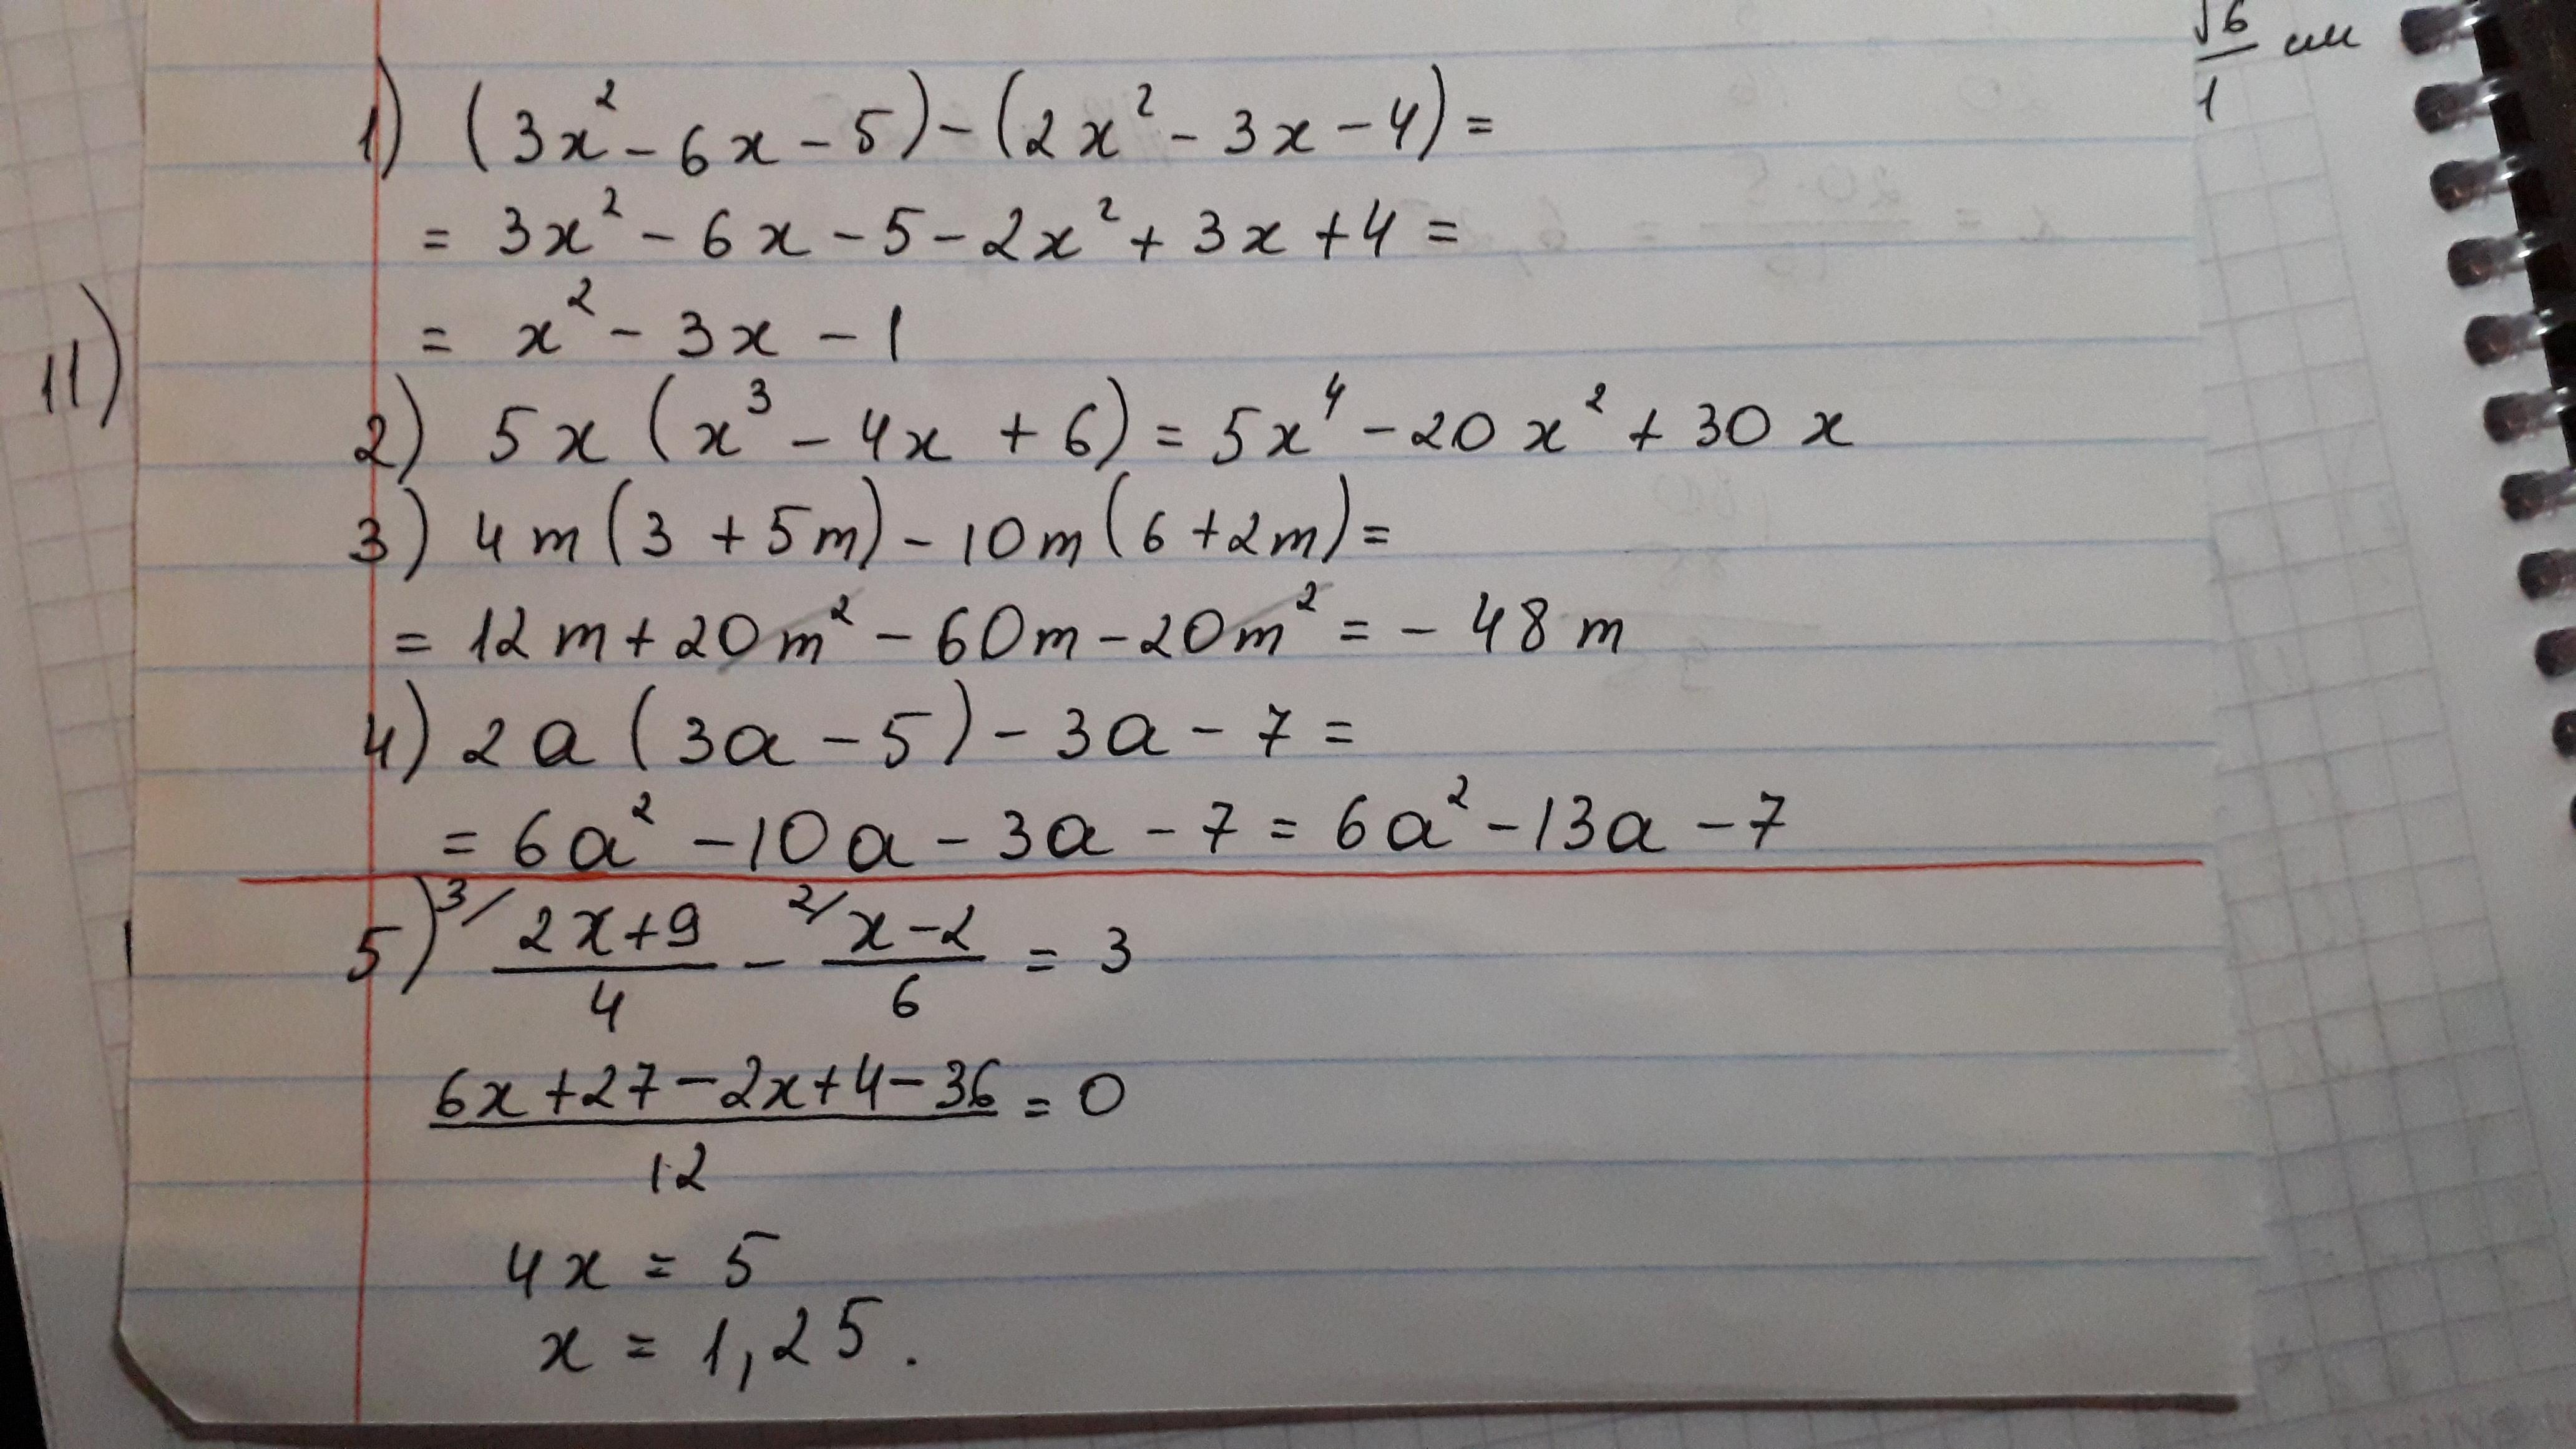 √6/1 см
11)
1) (3x² - 6x - 5) - (2x² - 3x - 4) =
= 3x² - 6x - 5 - 2x² + 3x + 4 =
= x² - 3x - 1
2) 5x (x³ - 4x + 6) = 5x⁴ - 20x² + 30x
3) 4m (3 + 5m) - 10m (6 + 2m) =
= 12m + 20m² - 60m - 20m² = - 48m
4) 2a (3a - 5) - 3a - 7 =
= 6a² - 10a - 3a - 7 = 6a² - 13a - 7
5) 3/ (2x+9)/4 - 2/ (x-2)/6 = 3
(6x+27-2x+4-36)/12 = 0
4x = 5
x = 1,25.